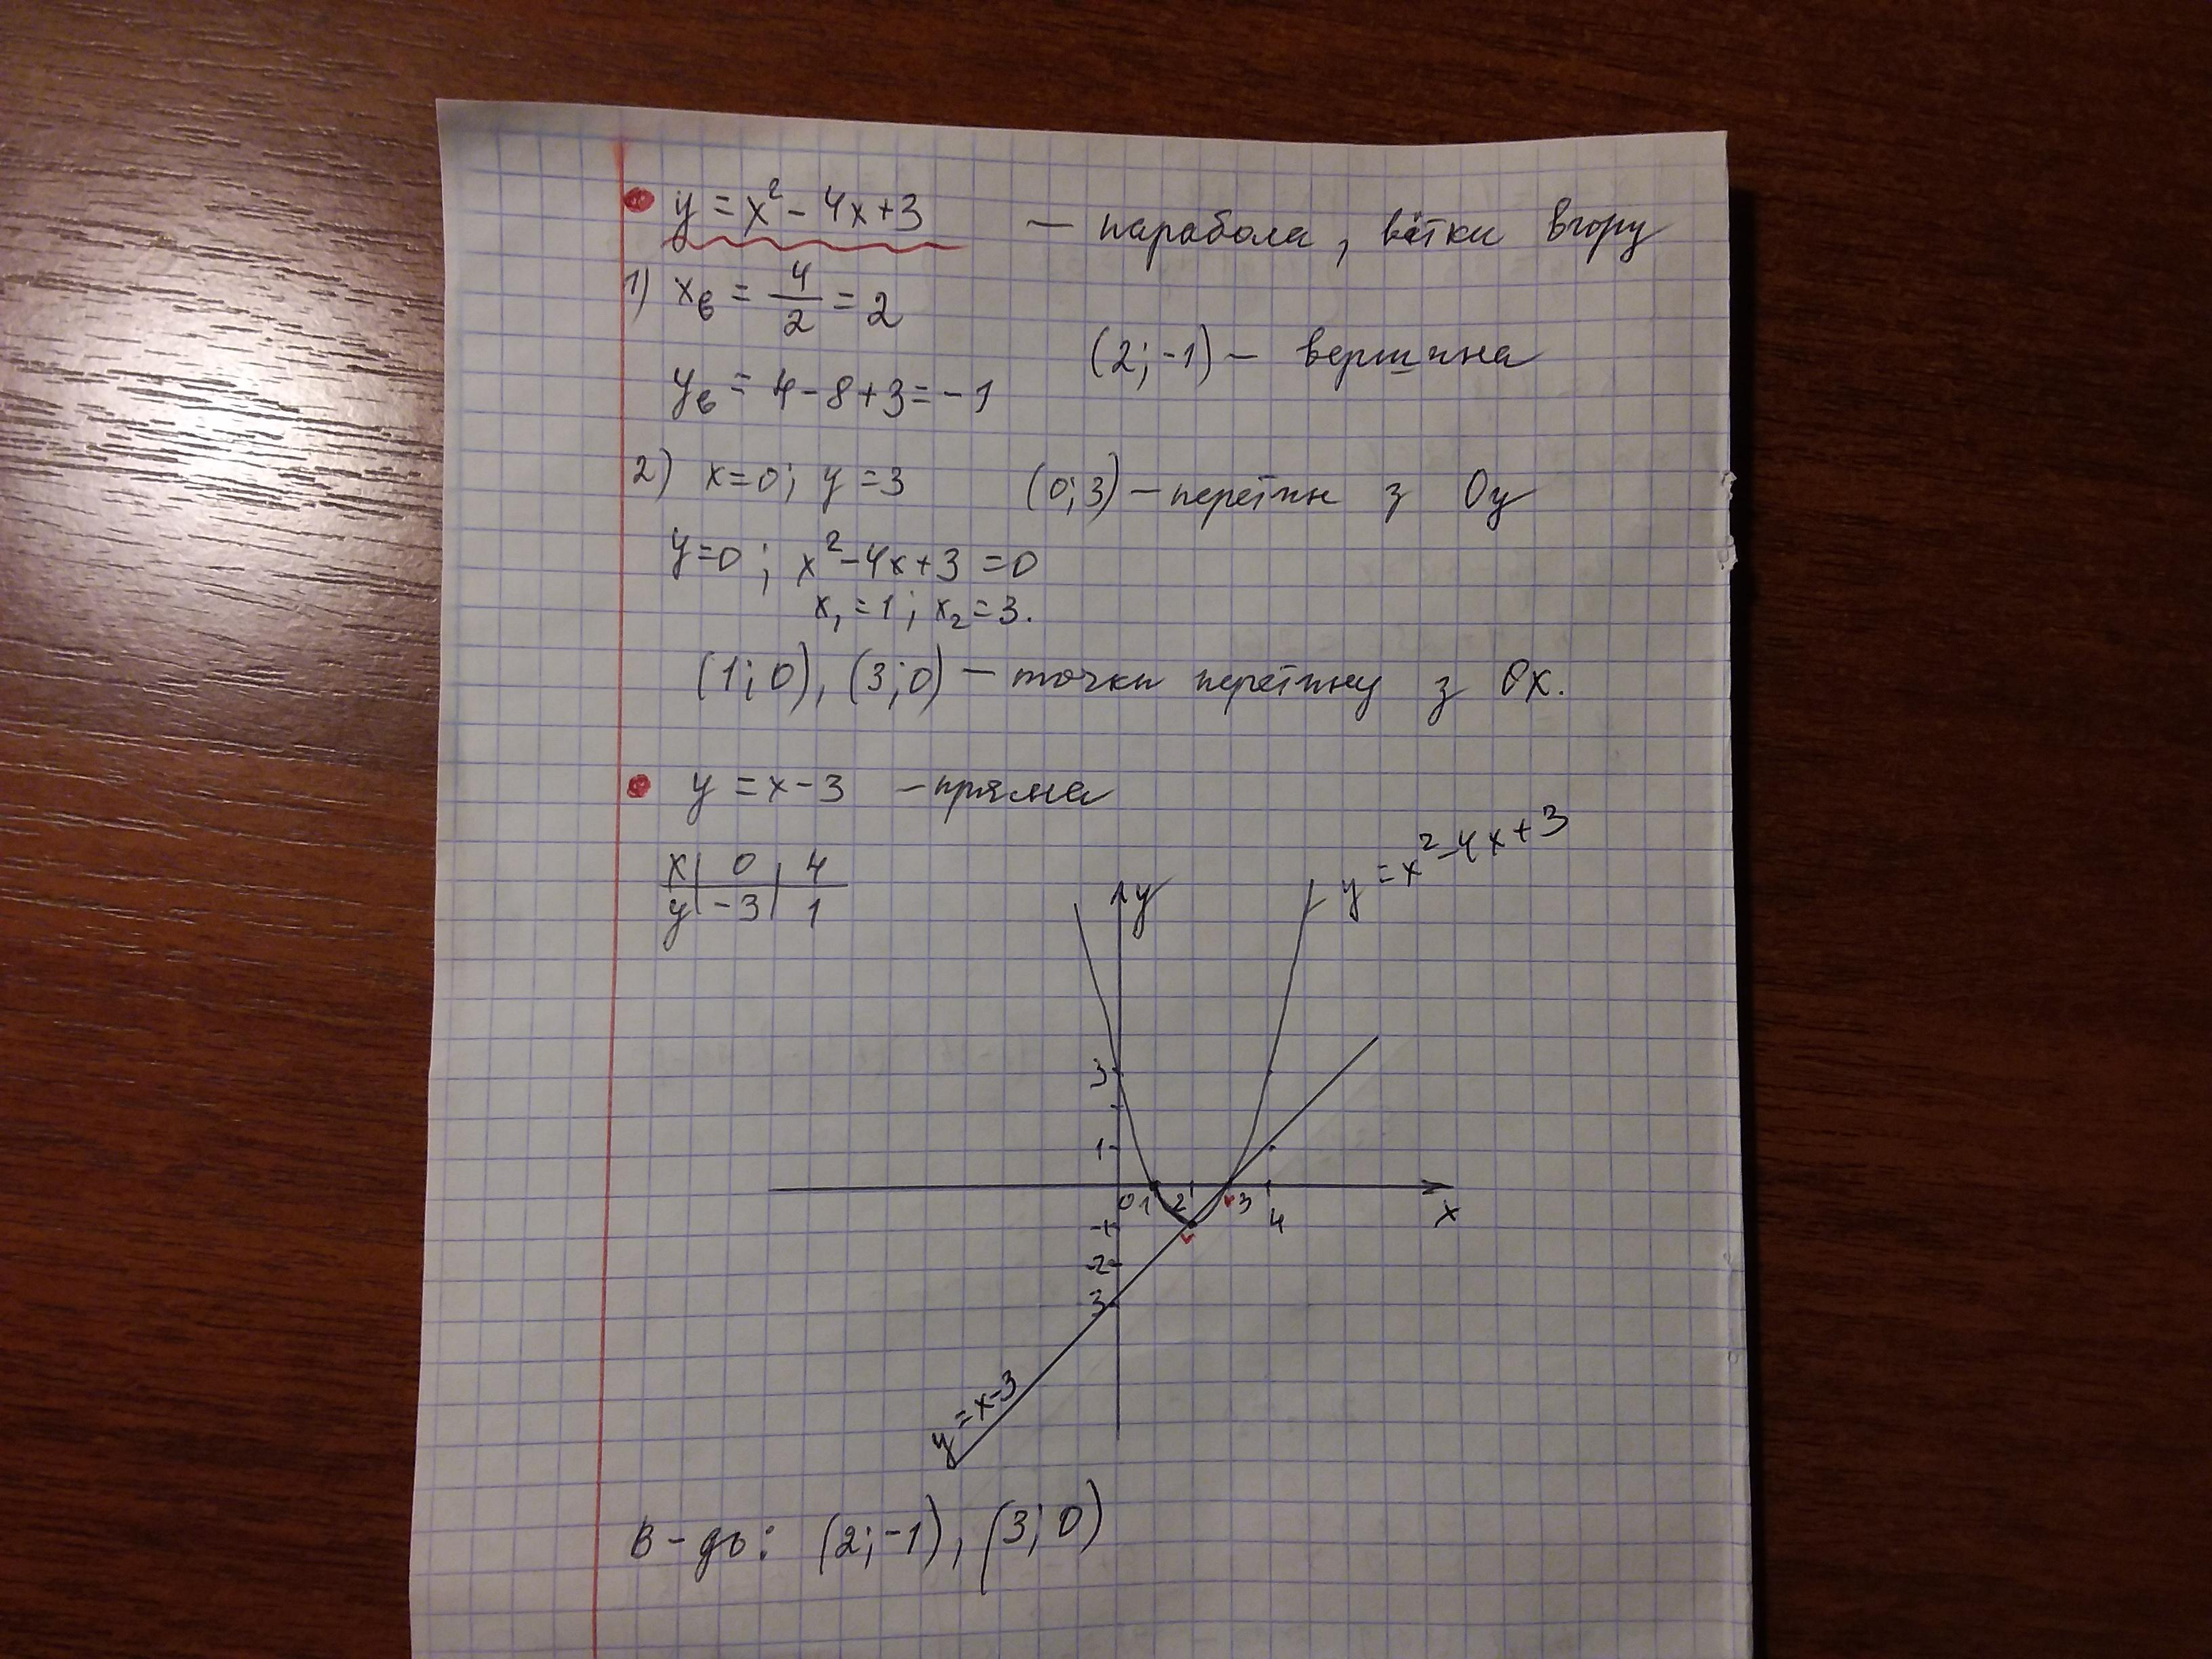 y = x² - 4x + 3 — парабола, вітки вгору
1) xв = 4/2 = 2
(2; -1) — вершина
yв = 4 - 8 + 3 = -1
2) x=0; y=3 (0; 3) — перетин з Oy
y=0; x² - 4x + 3 = 0
x₁ = 1; x₂ = 3.
(1; 0), (3; 0) — точки перетину з Ox.
y = x - 3 — пряма
x | 0 | 4
y | -3 | 1
y = x² - 4x + 3
y
3
1
0 1 2 3 4 x
-1
-2
-3
y = x - 3
В-дь: (2; -1), (3; 0)